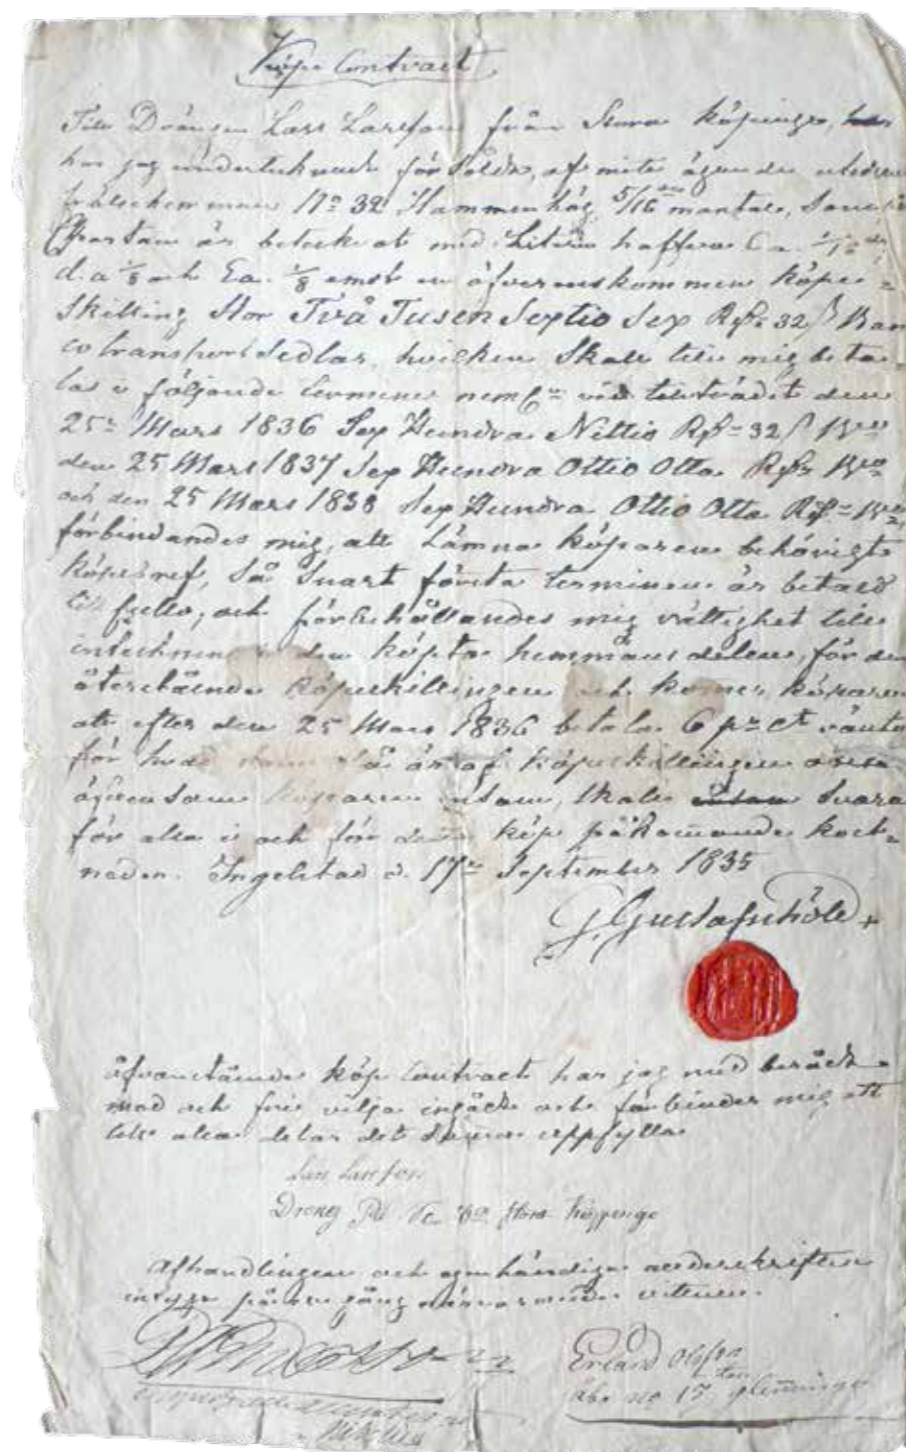 Köpe Contract
Till Drängen Lars Larsson från Stora Köpinge,
har jag undertecknad försåldt, af mitt ägande
frälsehemman No 32 Hammenhög 5/16 mantal, som på
Chartan är betecknat med Littera
d.a 1/8 och Ea. 1/8 emot en öfverenskommen Köpe-
Skilling Stor Två Tusen Sextio Sex Rdr 32 s Ban
co transport Sedlar, hvilken Skall till mig beta-
las i följande terminer neml. vid tillträdet den
25 Mars 1836 Sex Hundra Nittio Rdr 32 s Bco
den 25 Mars 1837 Sex Hundra Ottio Otta Rdr Bco
och den 25 Mars 1838 Sex Hundra Ottio Otta Rdr Bco
förbindandes mig, att Lämna köparen behörigt
köpebref, Så Snart första terminen är betald
till fullo, och förbehållandes mig rättighet till
inteckning i den köpta hemmans delen, för den
återstående Köpeskillingen och komer köparen
att efter den 25 Mars 1836 betala 6 pr Ct ränta
för hvad som då är af Köpeskillingen
äfvensom Köparen ensam, Skall Svara
för alla i och för detta köp påkommande kost-
nader. Ingelstad d. 17 September 1835
G. Gustafsköld
Ofvanstående Köp Contract har jag med beråd
mod och fri vilja ingådt och förbinder mig att
till alla delar det Samma uppfylla
Lars Larsson
Dräng På No Stora Köppinge
Afhandlingen och egenhändiga underskriften
intyga på en gång närvarande vittnen.
Erland Olsson
åbo no 17